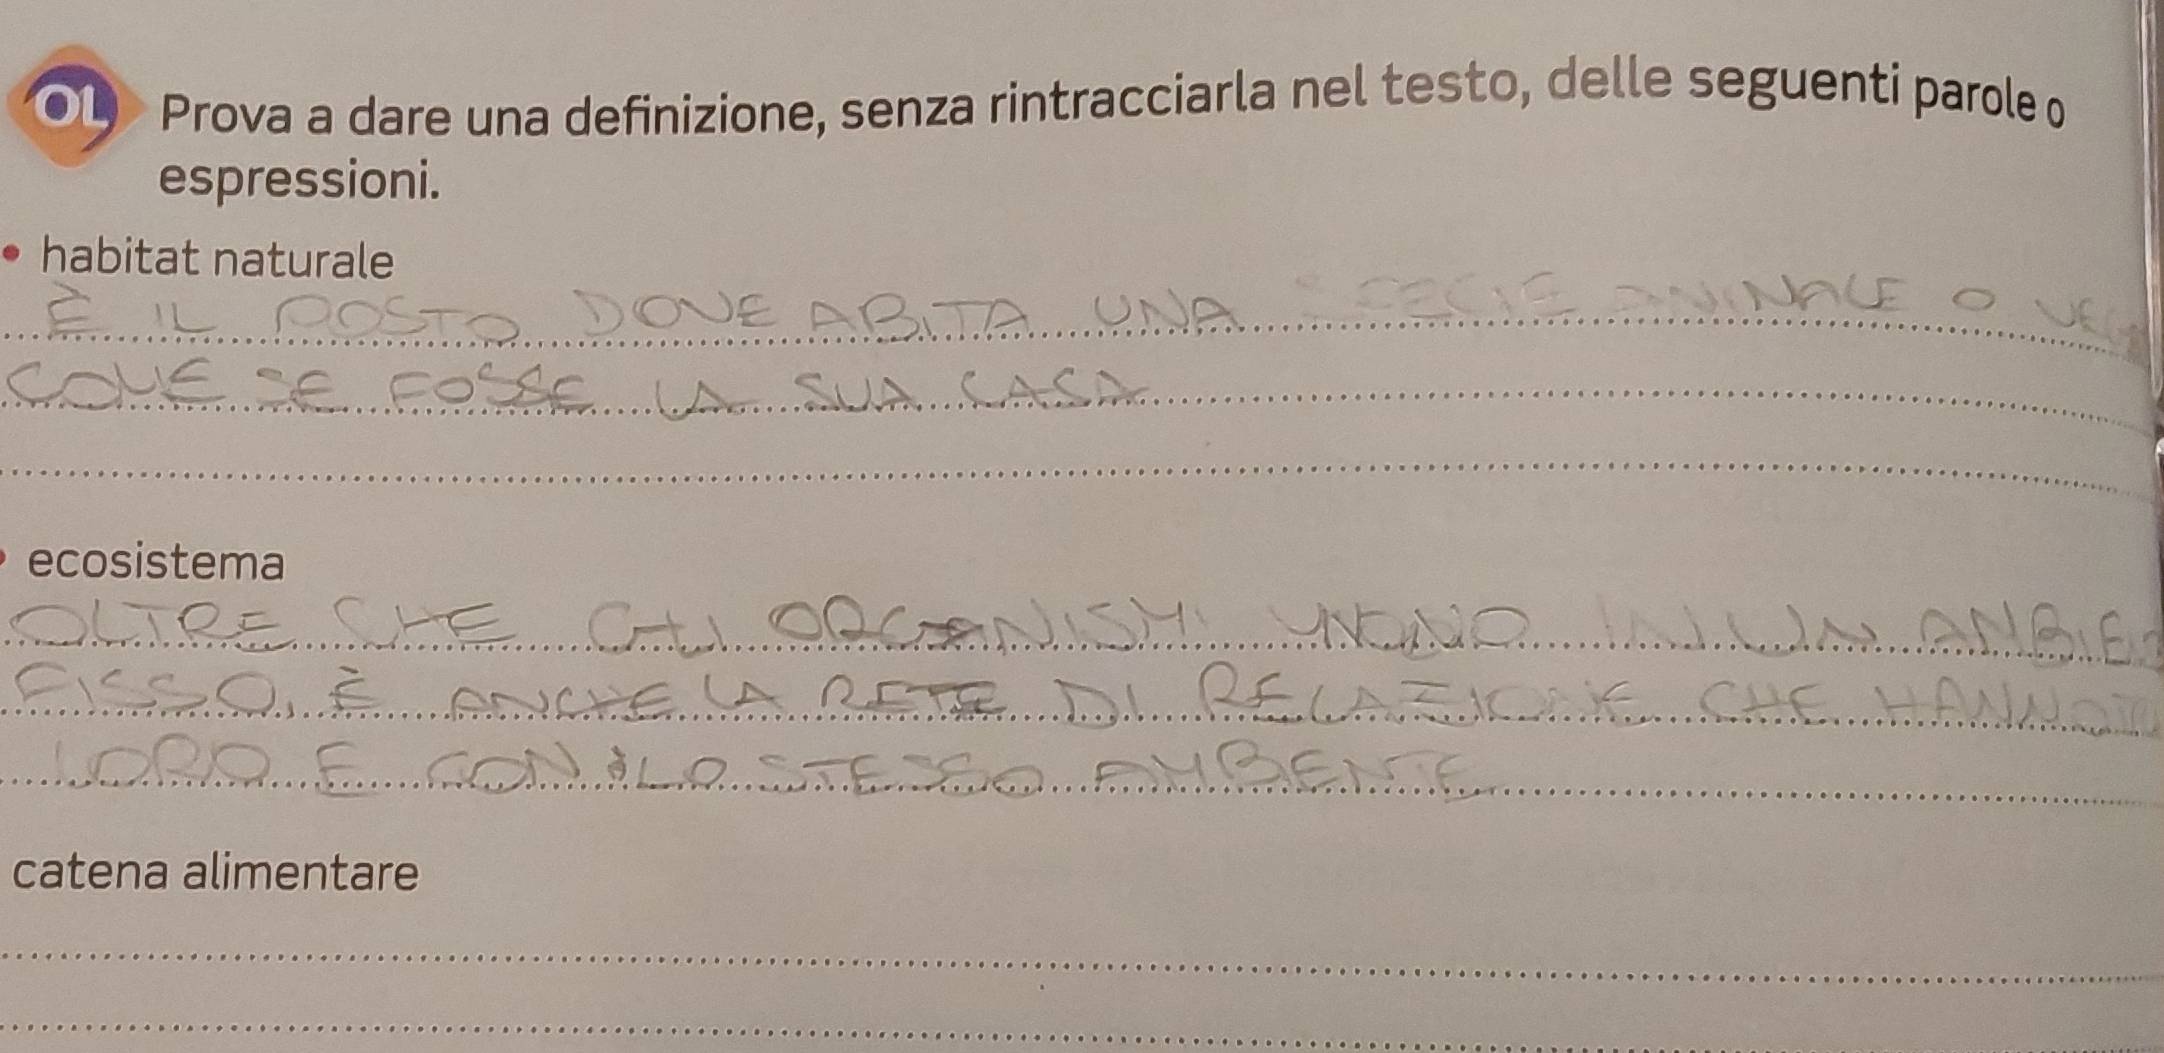 OL Prova a dare una definizione, senza rintracciarla nel testo, delle seguenti parole o
espressioni.
• habitat naturale
È IL POSTO DOVE ABITA UNA SPECIE ANIMALE O
COME SE FOSSE LA SUA CASA
• ecosistema
OLTRE CHE GLI ORGANISMI VIVONO IN UN
FISSO, È ANCHE LA RETE DI RELAZIONE CHE HANNO
LORO E CON LO STESSO AMBENTE
catena alimentare